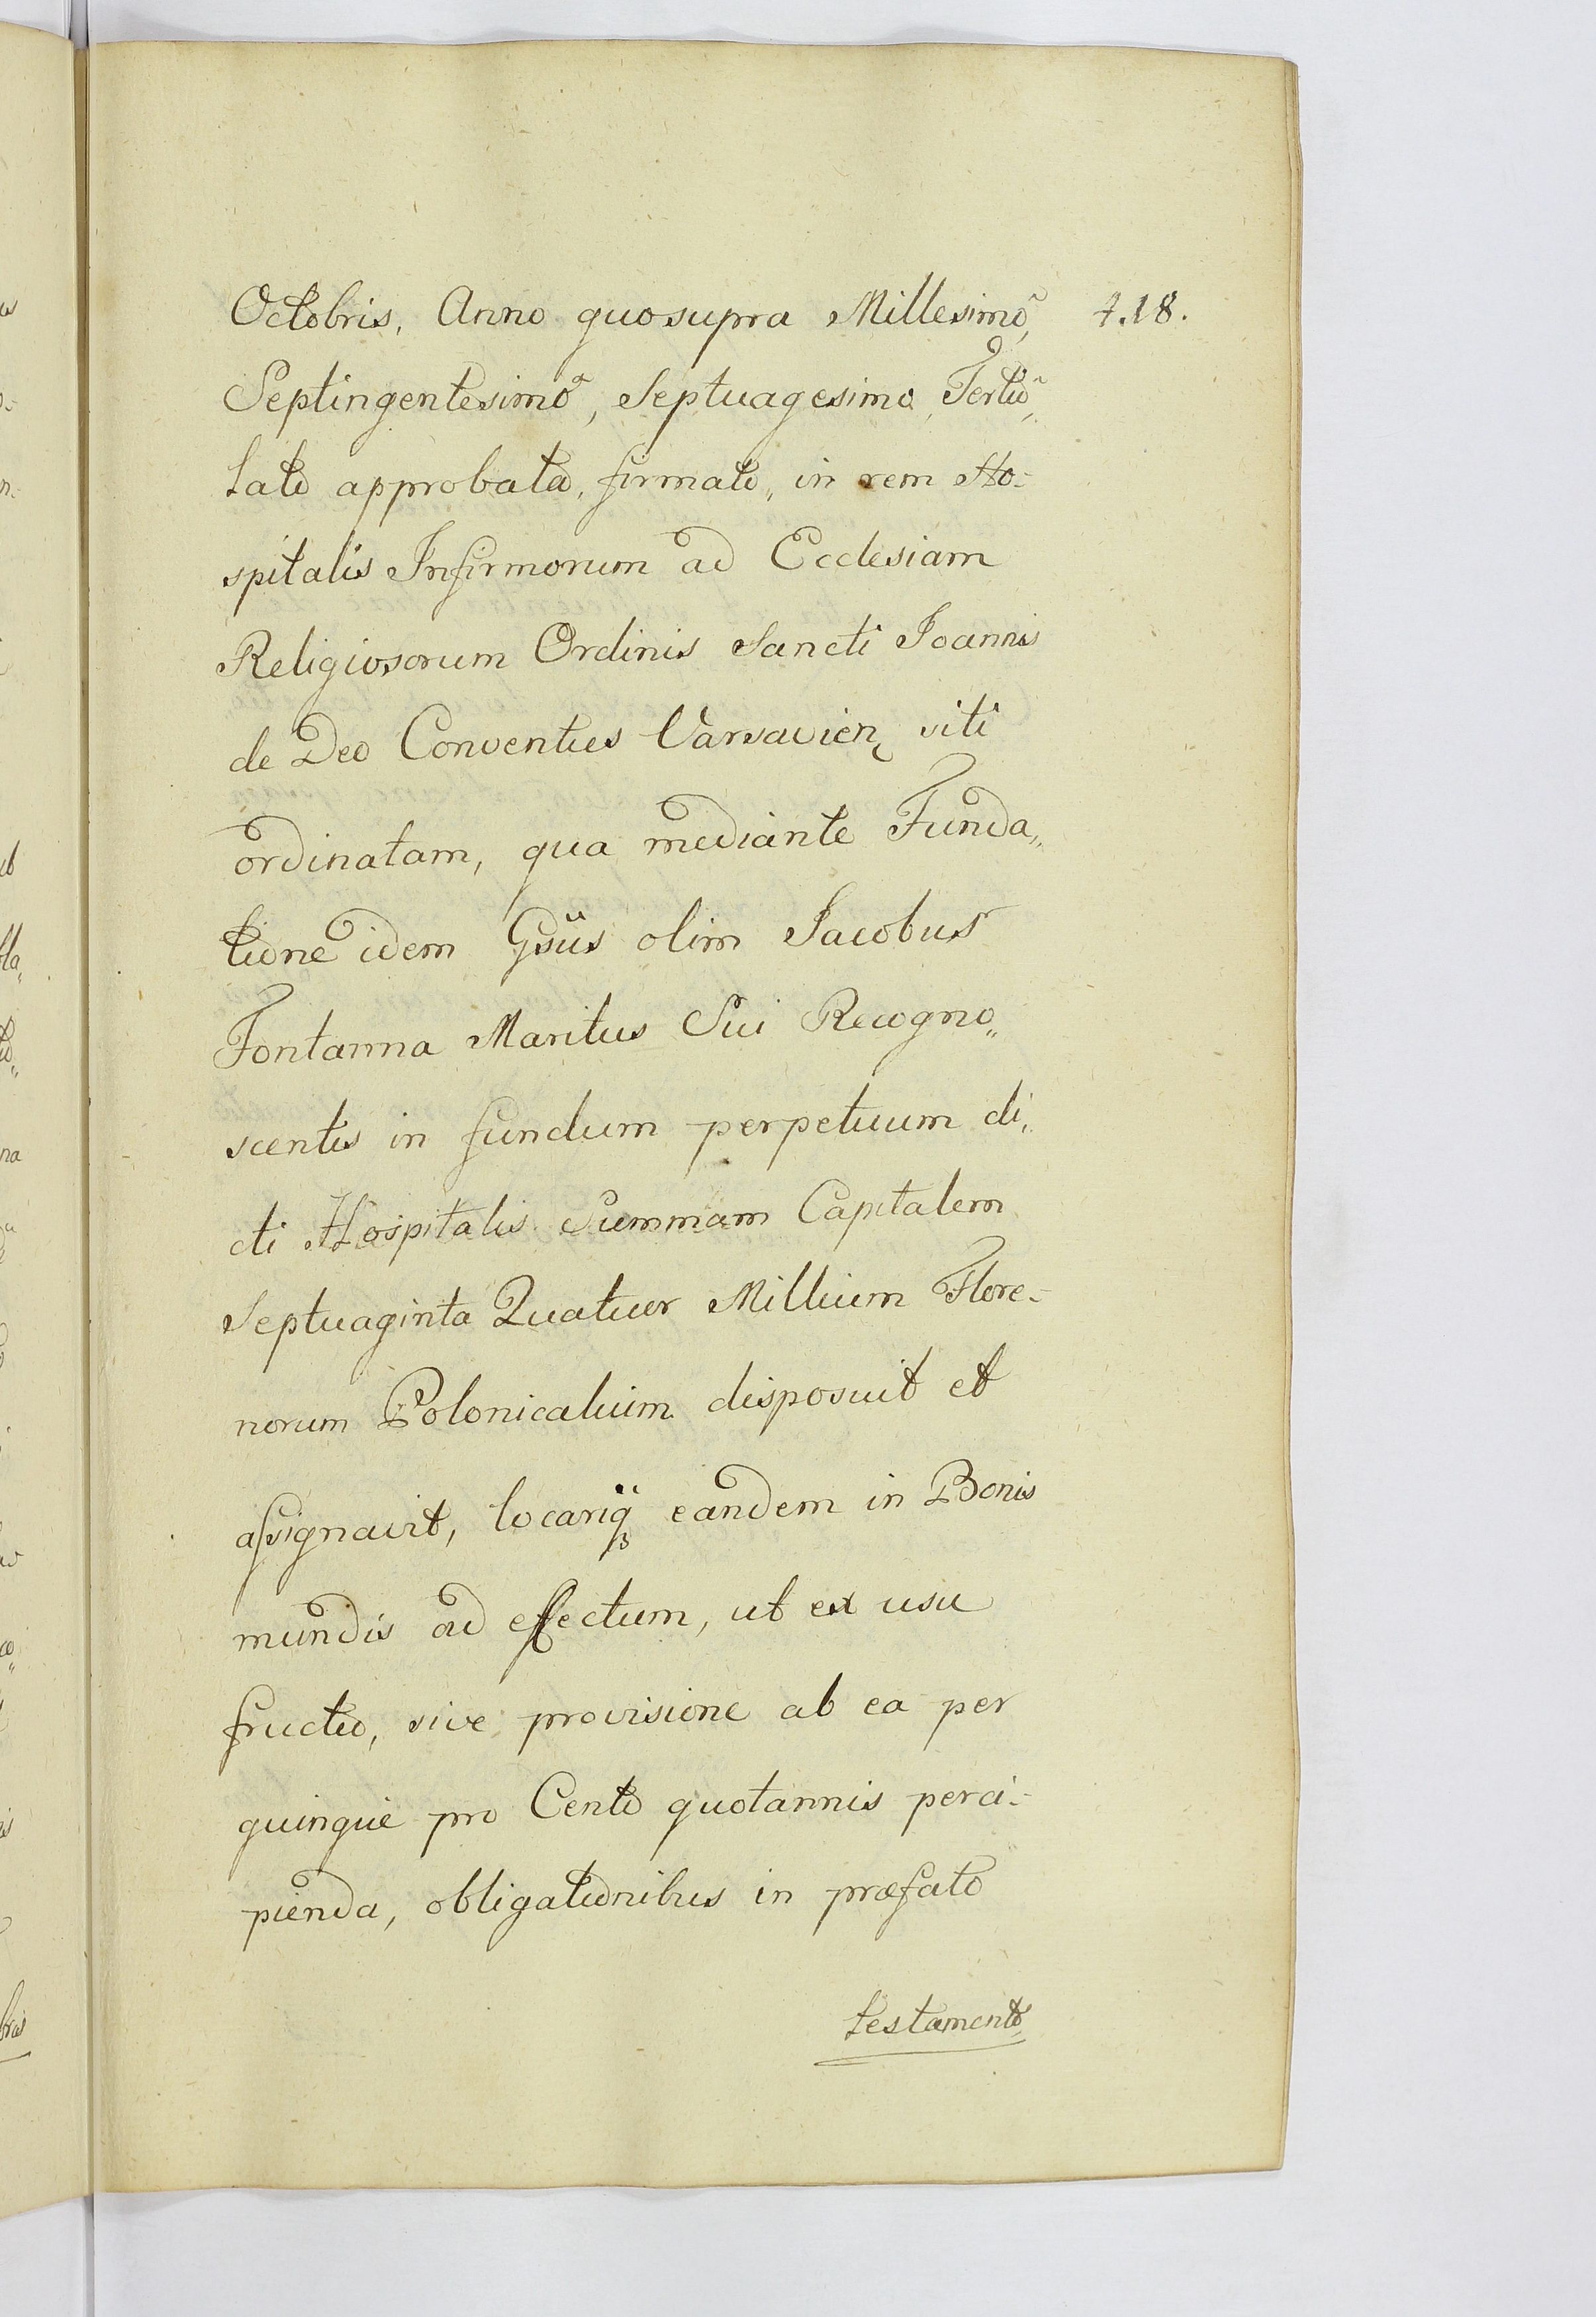 Octobris, Anno quo supra Millesimo, 4.18.
Septingentesimo, Septuagesimo Tertio,
lato approbato, firmato, in rem Ho-
spitalis Infirmorum ad Ecclesiam
Religiosorum Ordinis Sancti Joannis
de Deo Conventus Varsavien siti
ordinatam, qua mediante Funda„
tione idem Gsus olim Jacobus
Fontanna Maritus Sui Recogno„
scentis in fundum perpetuum di„
cti Hospitalis Summam Capitalem
Septuaginta Quatuor Millium Flore-
norum Polonicalium disposuit et
assignavit, locariq₃ eandem in Bonis
mundis ad effectum, ut ex usu
fructu, sive provisione ab ea per
quinque pro Cento quotannis perci-
pienda, obligationibus in præfato
testamento